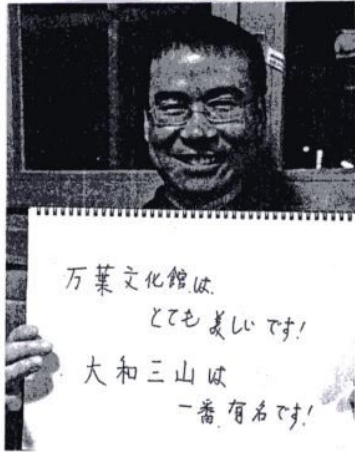 万葉文化館は、
とても美しいです！
大和三山は
一番、有名です！